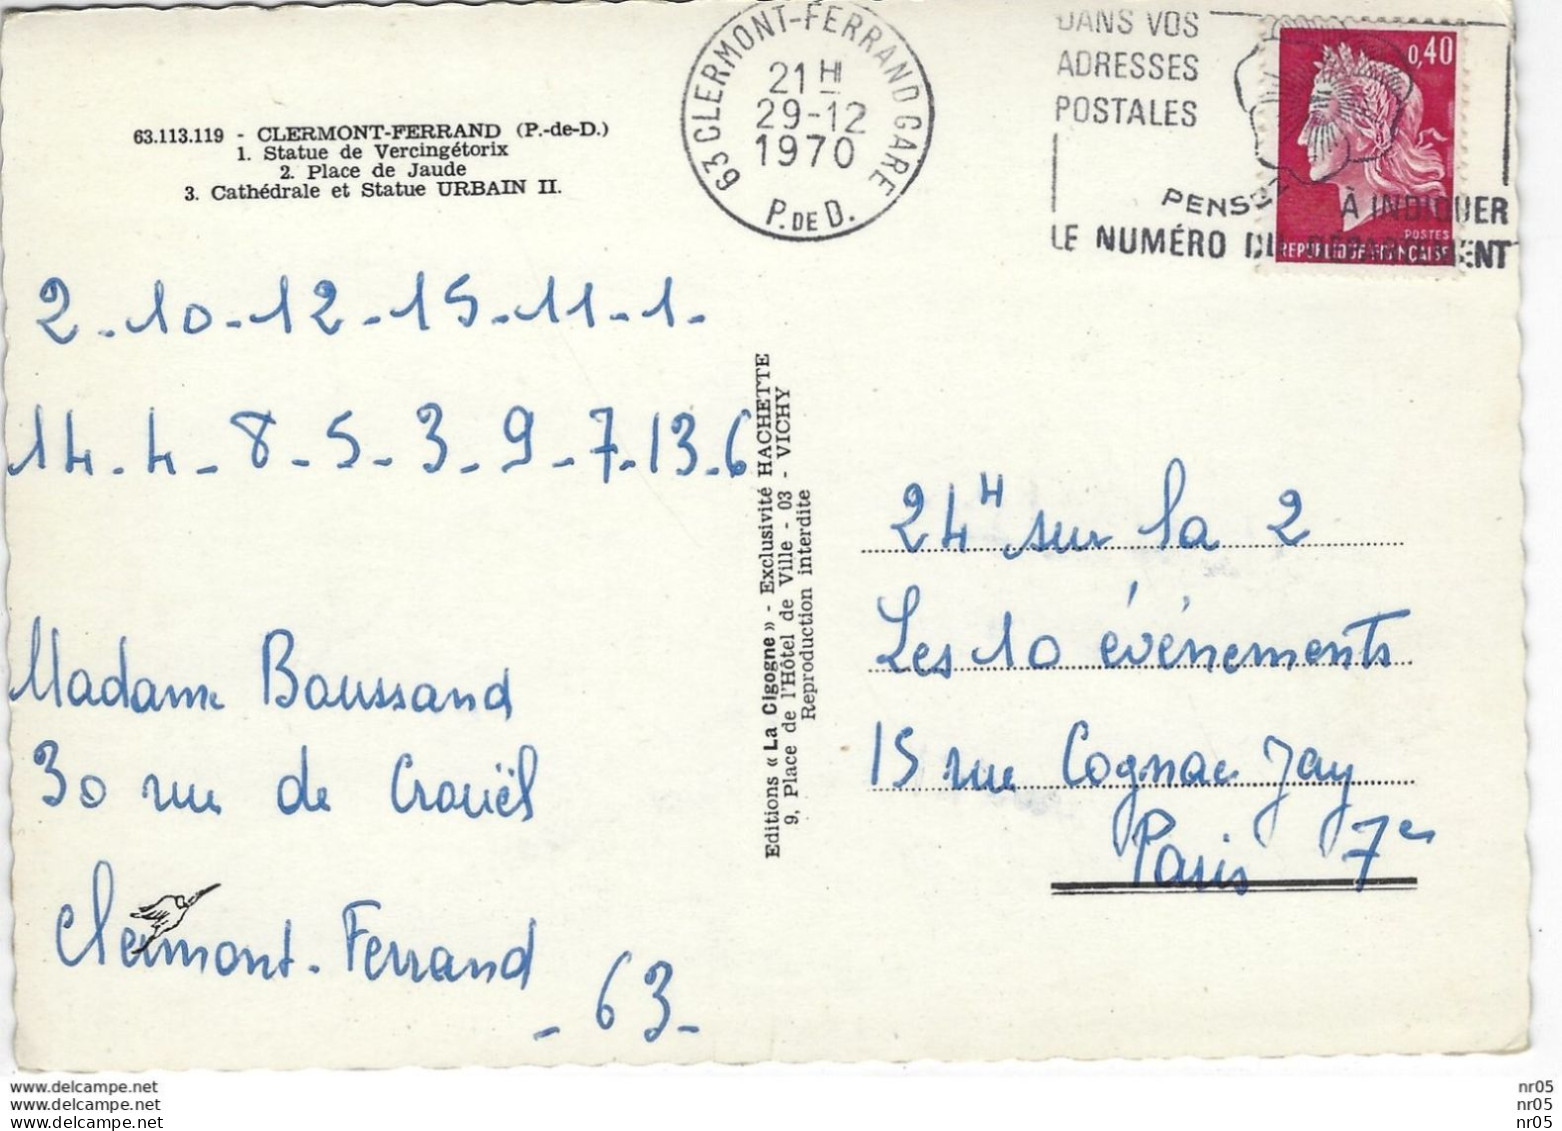 63.113.119 - CLERMONT-FERRAND (P.-de-D.)
1. Statue de Vercingétorix
2. Place de Jaude
3. Cathédrale et Statue URBAIN II.
63 CLERMONT-FERRAND GARE
21 H
29-12
1970
P. DE D.
DANS VOS
ADRESSES
POSTALES
PENSEZ À INDIQUER
LE NUMÉRO DU DÉPARTEMENT
0,40
POSTES
REPUBLIQUE FRANÇAISE
2 - 10 - 12 - 15 - 11 - 1 -
14 - 4 - 8 - 5 - 3 - 9 - 7 - 13 - 6
Madame Boussand
30 rue de Crouël
Clermont-Ferrand
- 63 -
Editions « La Cigogne » - Exclusivité HACHETTE
9, Place de l'Hôtel de Ville - 03 - VICHY
Reproduction interdite
24H sur la 2
Les 10 événements
15 rue Cognac Jay
Paris 7e
www.delcampe.net
www.delcampe.net
www.delcampe.net
nr05
nr05
nr05